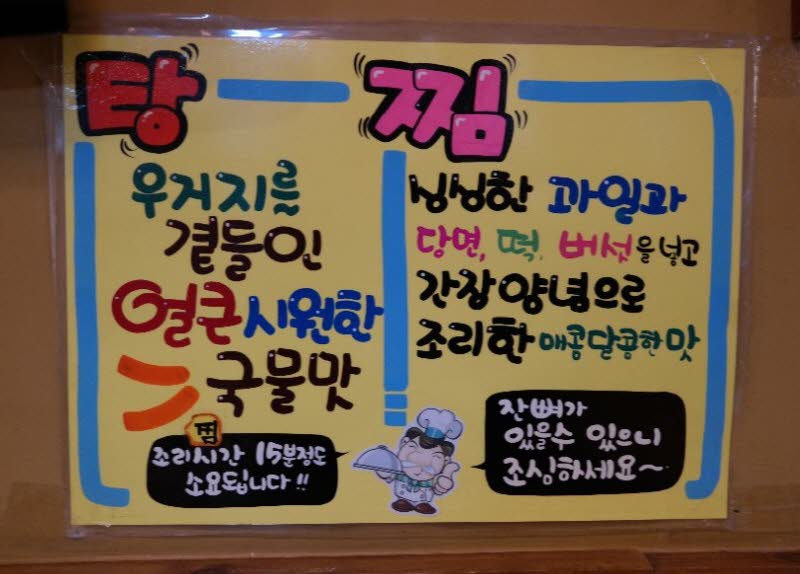 탕
우거지를
곁들인
얼큰 시원한
그 국물맛
찜
싱싱한 과일과
당면, 떡, 버섯을 넣고
간장양념으로
조리한 매콤달콤한맛
찜
조리시간 15분정도
소요됩니다!!
잔뼈가
있을수 있으니
조심하세요~